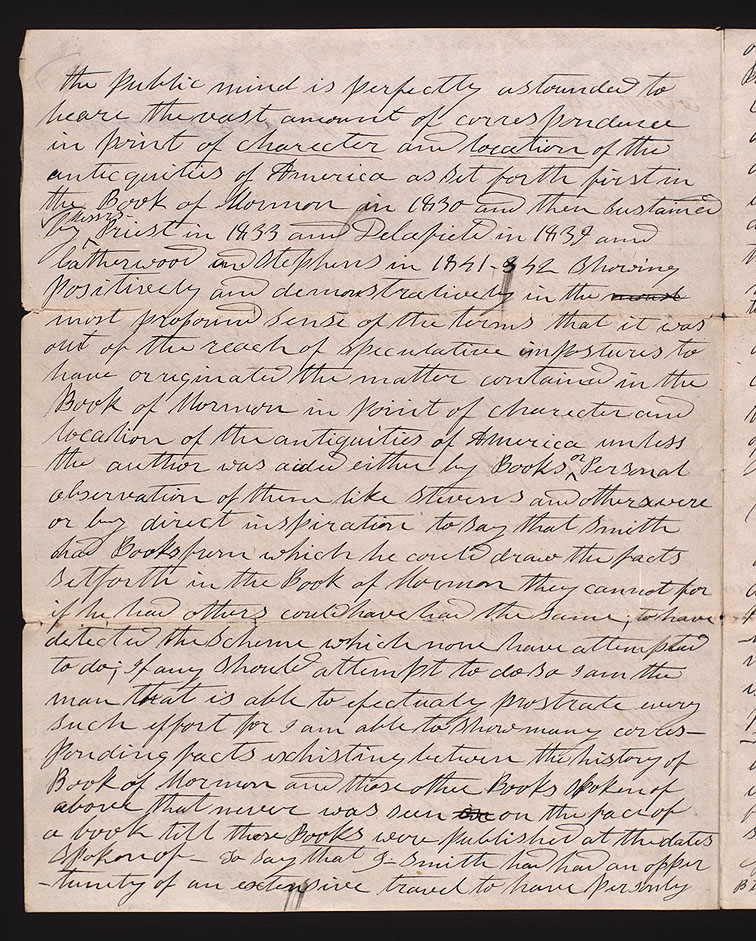 the public mind is perfectly astounded to
heare the vast amount of correspondence
in point of charecter and location of the
anticquities of America as set forth first in
the Book of Mormon in 1830 and then sustained
by Priest in 1833 and Delafield in 1839 and
Catherwood and Stephens in 1841-& 42 showing
positively and demonstratively in the most
most profound sense of the terms that it was
out of the reach of speculative impostures to
have orriginated the matter contained in the
Book of Mormon in point of charecter and
location of the antiquities of America unless
the author was aided either by Books or Personal
observation of them like Stevens and others were
or by direct inspiration to say that Smith
had Books from which he could draw the facts
set forth in the Book of Mormon they cannot for
if he had others could have had the same, to have
detected the scheme which none have attempted
to do; If any should attempt to do so I am the
man that is able to efectualy prostrate every
such effort for I am able to show many corres-
ponding facts exhisting between the history of
Book of Mormon and those other Books spoken of
above that never was seen on the face of
a book till those Books were published at the dates
spoken of - to say that J- Smith had had an opper
-tunity of an extensive travel to have personly